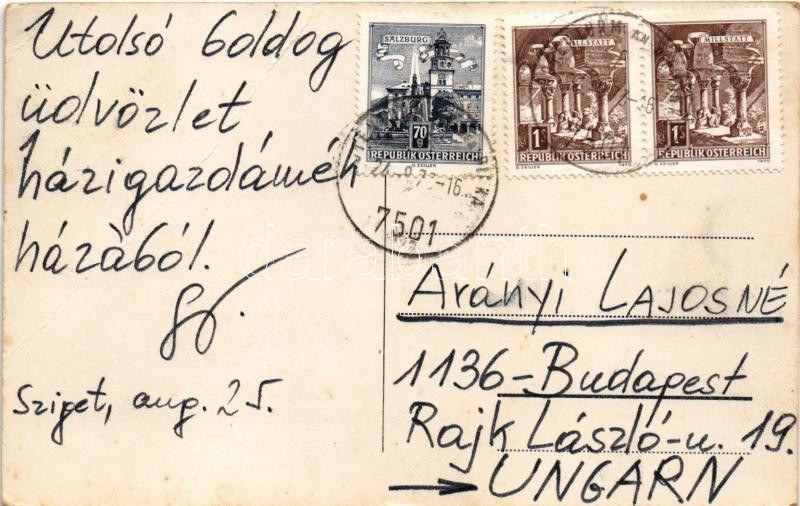 Utolsó boldog
üdvözlet
házigazdáméh
házából.
Sziget, aug. 25.
SALZBURG
70 g
REPUBLIK ÖSTERREICH
MILLSTATT
1 S
REPUBLIK ÖSTERREICH
MILLSTATT
1 S
REPUBLIK ÖSTERREICH
7501
Arányi LAJOSNÉ
1136-Budapest
Rajk László-u. 19.
→ UNGARN
darabanth